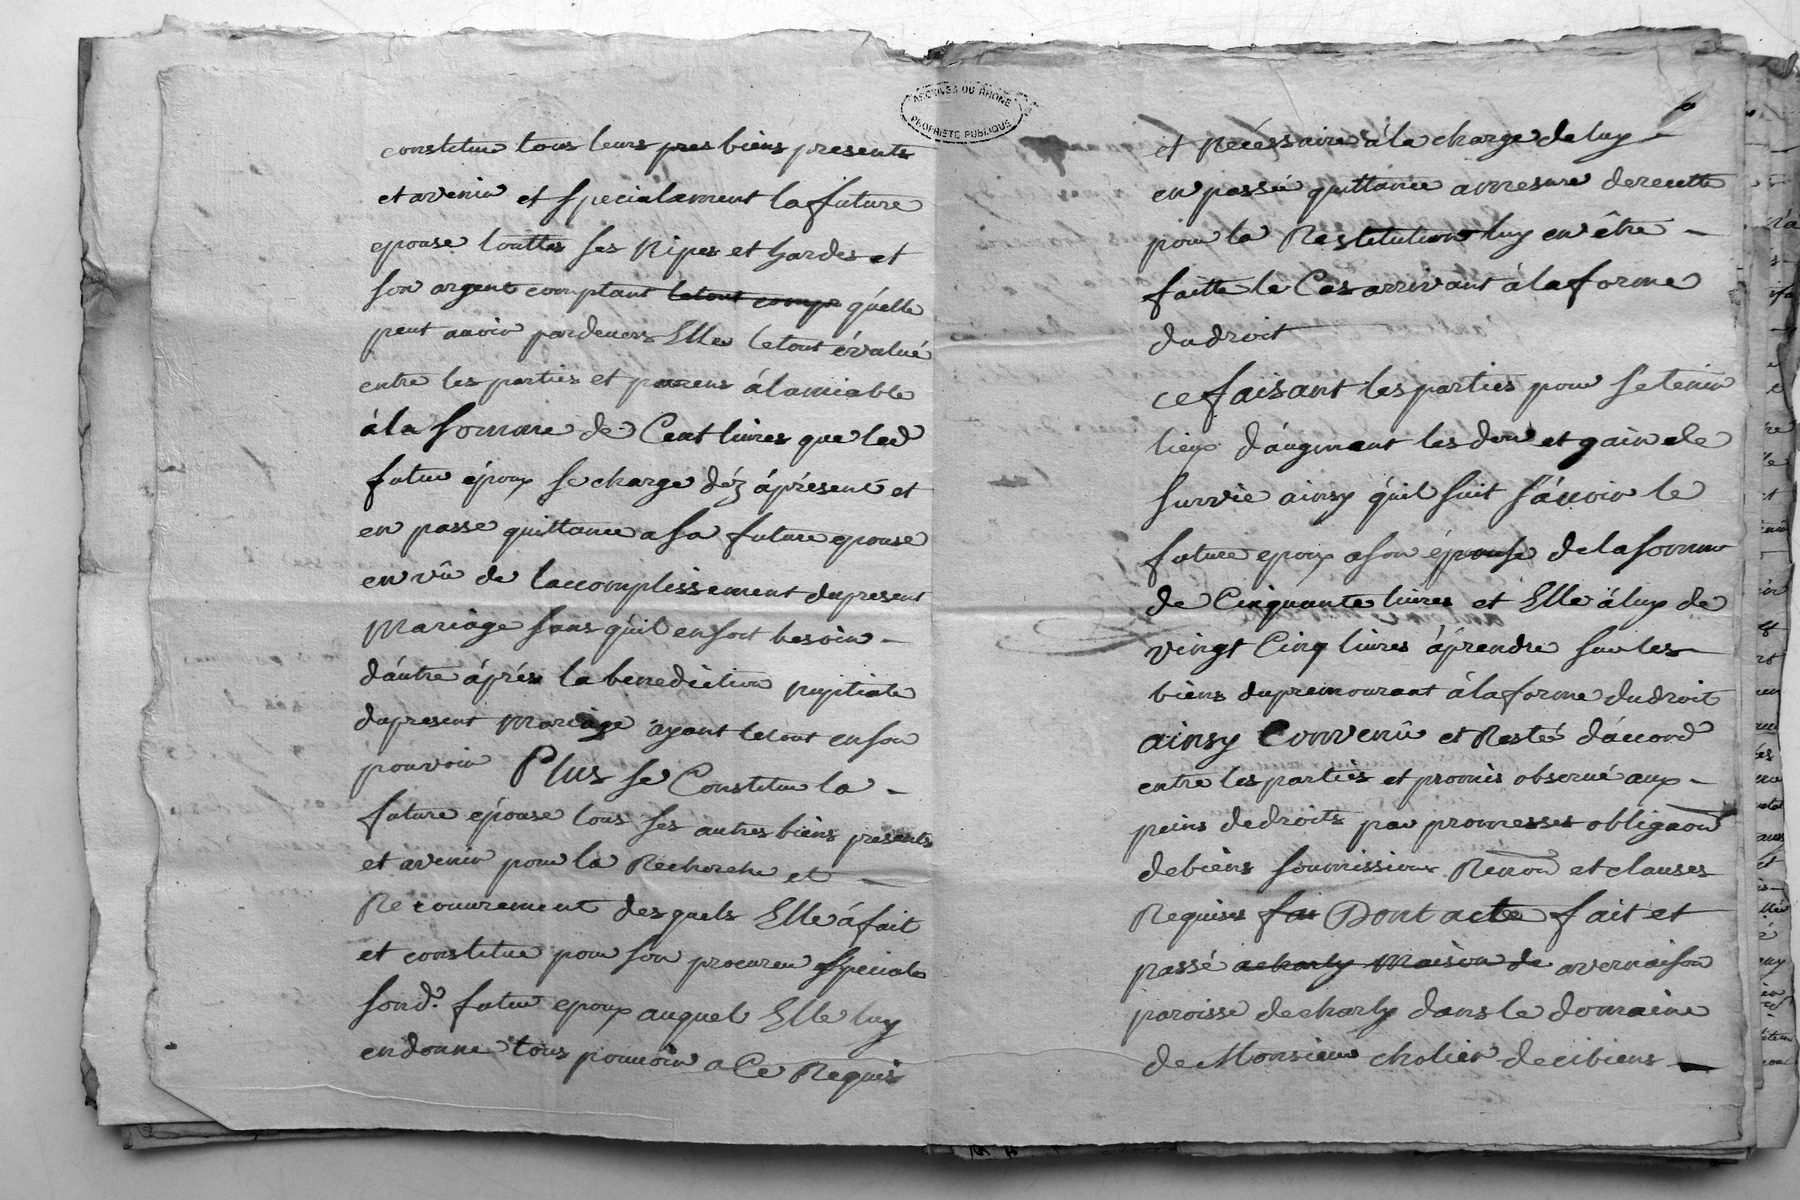 constitue tous leurs pres biens presents
et avenir et specialament la future
epouse touttes ses Nipes et hardes et
son argent comptant letout comp quelle
peut avoir pardevers Elle letout évalué
entre les parties et parens álamiable
álа somme de Cent livres que led
futur époux se charge déz áprésent et
en passe quittance a sa future epouse
en vû de laccomplissement dupresent
Mariage sans quil ensoit besoin
dáutre áprés la benediction nuptiale
dupresent Mariage áyant letout enson
pouvoir Plus se Constitue la
future épouse tous ses autres biens presents
et avenir pour la Recherche et
Recouvrement desquels Elle á fait
et constitue pour son procureur special
sond. futur epoux auquel Elle luy
endonne tous pouvoir a Ce Requis
ARCHIVES DU RHONE
PROPRIETE PUBLIQUE
et Nécéssaire á la charge de luy
en passé quittance amresure derecette
pour la Restitution luy en être
faitte le Cas arrivant á la forme
du droit
ce faisant les parties pour se tenir
lieux dáugment les don et gain de
survie ainsy quil suit sávoir le
future epoux a son épouse de la somme
de Cinquante livres et Elle á luy de
vingt Cinq livres áprendre sur les
biens dupremourant á la forme du droit
ainsy Convenû et Resté dáccord
entre les parties et promis observé aux
peins de droits par promesses obligaon
de biens soumissions Renon et clauses
Requises fai Dont acte fait et
passé acharly Maison de avernaison
paroisse de charly dans le domaine
de Monsieur cholier decibiens